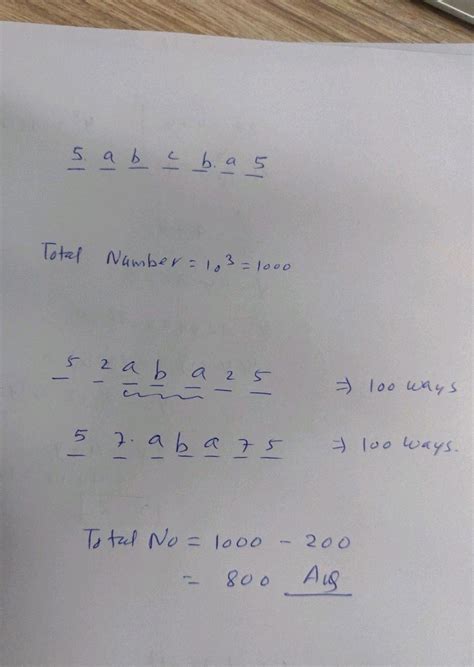 5 a b c b a 5
Total Number = 10³ = 1000
5 2 a b a 2 5 ⇒ 100 ways
5 7 a b a 7 5 ⇒ 100 ways.
Total No = 1000 - 200
= 800 Ans